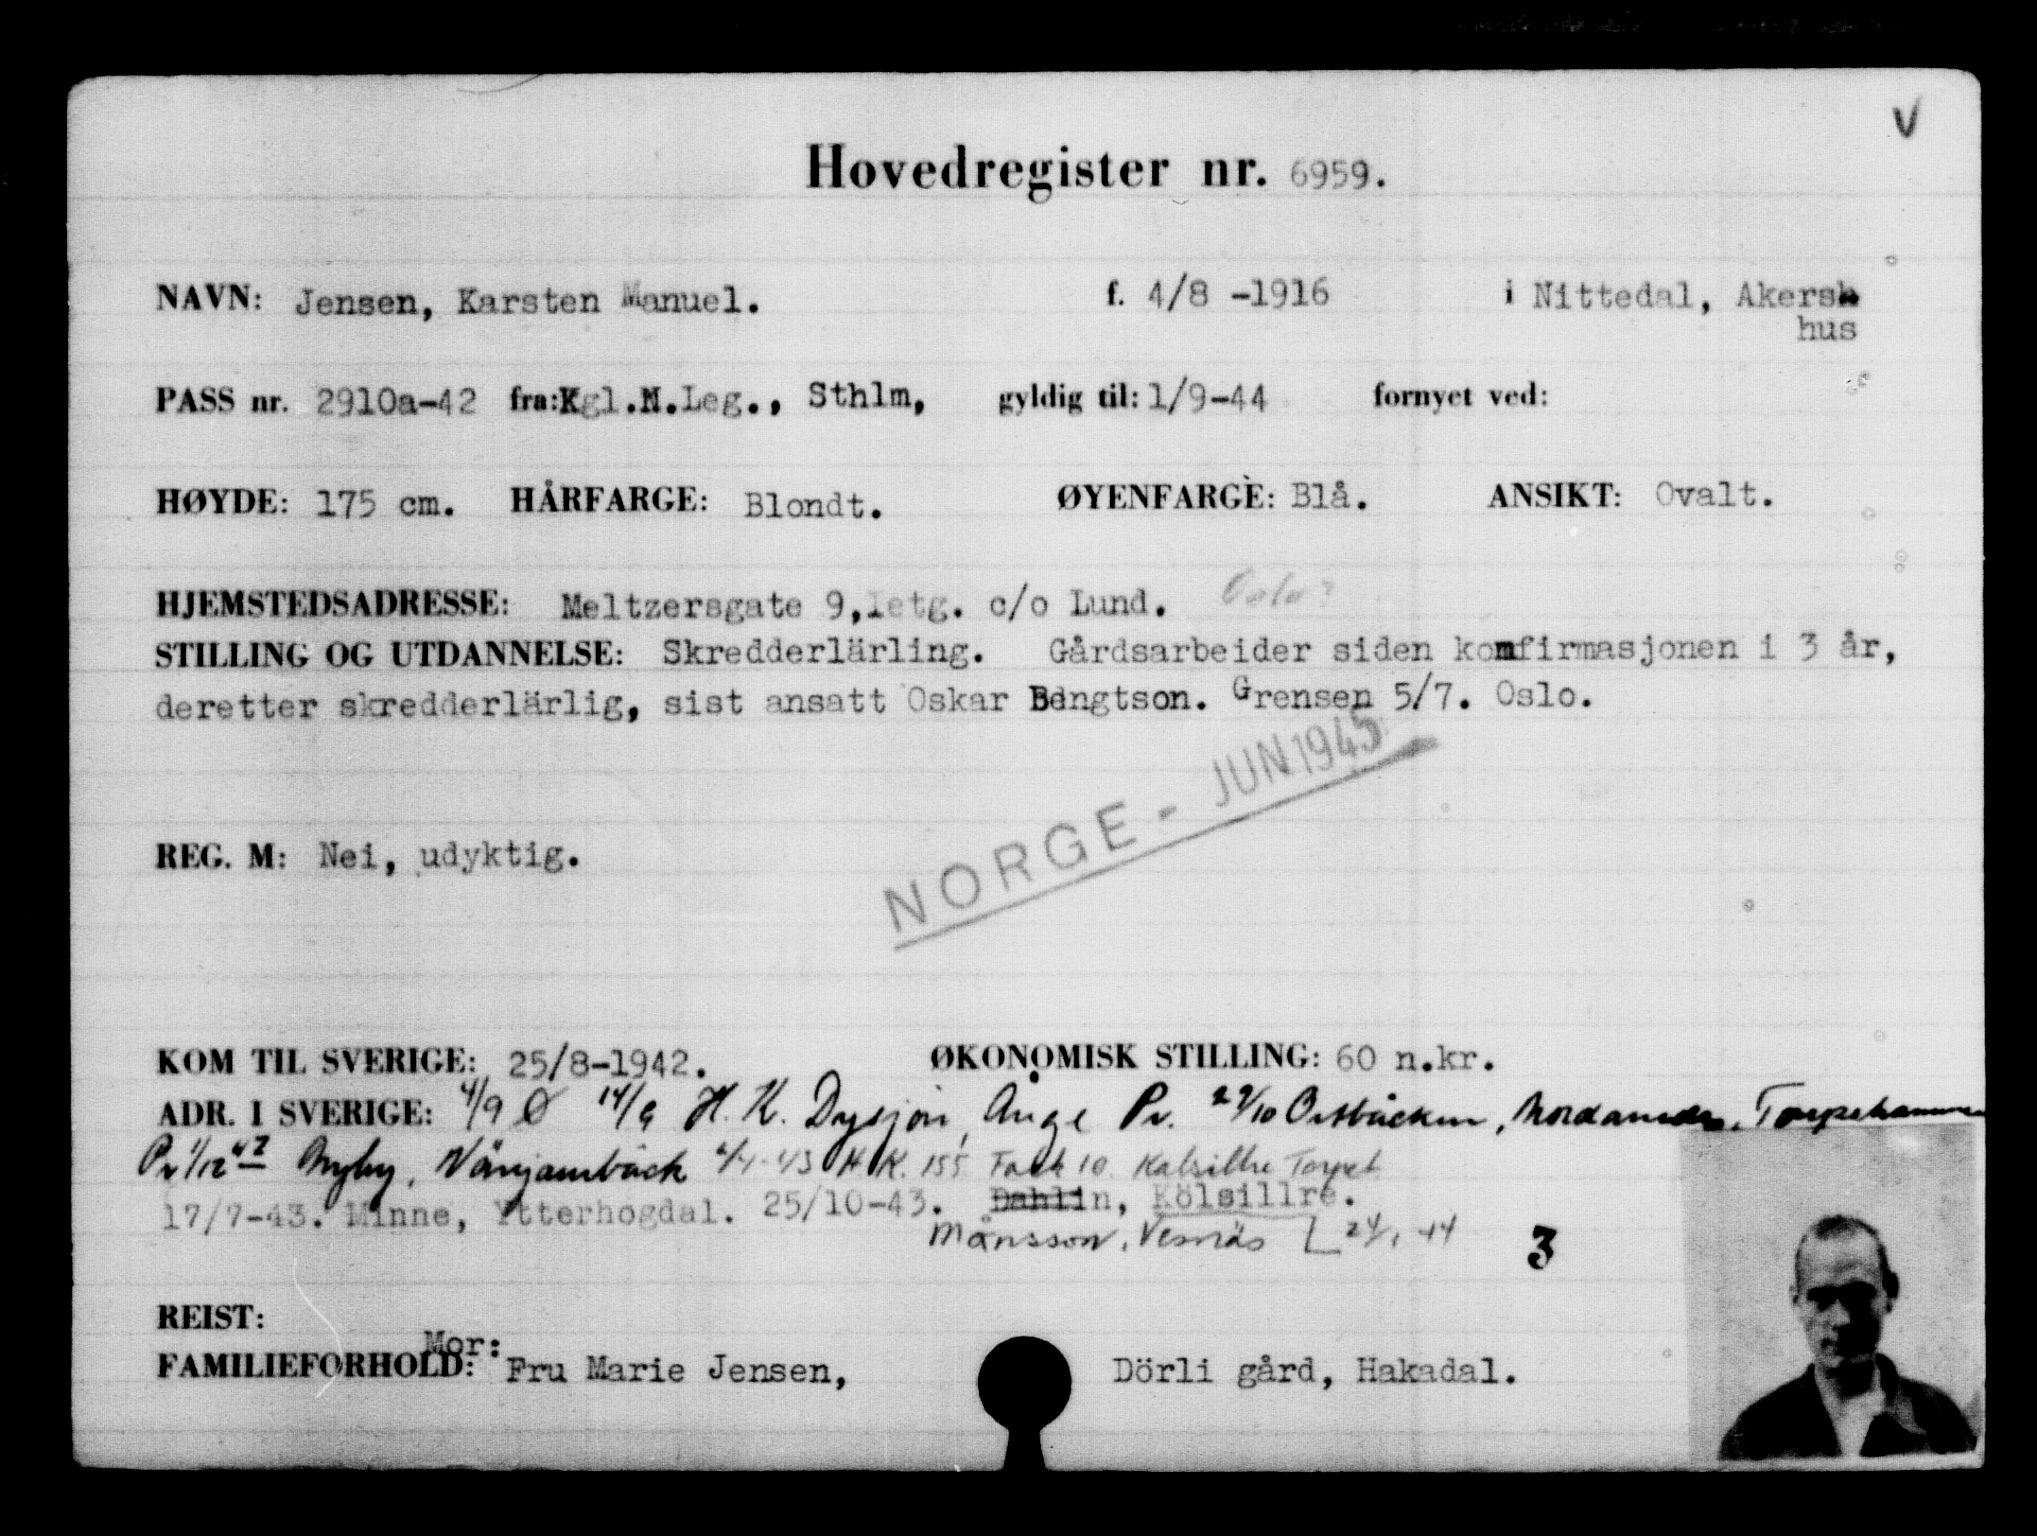 V
Hovedregister nr. 6959.
NAVN: Jensen, Karsten Manuel. f. 4/8 -1916 i Nittedal, Akersh
hus
PASS nr. 2910a-42 fra: Kgl.N.Leg., Sthlm, gyldig til: 1/9-44 fornyet ved:
HØYDE: 175 cm. HÅRFARGE: Blondt. ØYENFARGE: Blå. ANSIKT: Ovalt.
HJEMSTEDSADRESSE: Meltzersgate 9, Ietg. c/o Lund. Oslo?
STILLING OG UTDANNELSE: Skredderlärling. Gårdsarbeider siden konfirmasjonen i 3 år,
deretter skredderlärlig, sist ansatt Oskar Bengtson. Grensen 5/7. Oslo.
NORGE - JUN 1945
REG. M: Nei, udyktig.
KOM TIL SVERIGE: 25/8-1942. ØKONOMISK STILLING: 60 n.kr.
ADR. I SVERIGE: 4/9 Ø 14/9 H. K. Dysjön, Ånge Pv. 29/10 Östbäcken, Torpshammar
Pv 1/12 42 Myby, Vänjaurbäck 6/4-43 H.K. 155 Fack 10 Kälsillre Torpet
17/7-43. Minne, Ytterhogdal. 25/10-43. Dahlin, Kölsillre.
Månsson, Vesnäs 24/1 -44
3
REIST:
Mor:
FAMILIEFORHOLD: Fru Marie Jensen, Dörli gård, Hakadal.